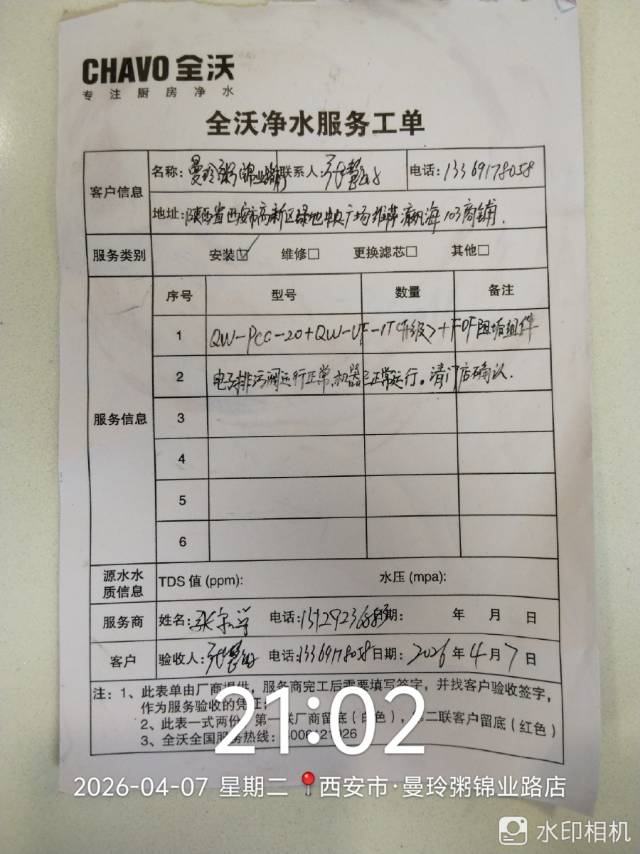 CHAVO 全沃
专注厨房净水
全沃净水服务工单
客户信息 名称: 曼玲粥锦业路 联系人: 电话: 13369178058
地址: 陕西省西安市高新区绿地中央广场 瀛海 103商铺.
服务类别 安装☑ 维修□ 更换滤芯□ 其他□
服务信息 序号 型号 数量 备注
1 QW-PCC-20+QW-UF-1T(升级)+FOF阻垢组件
2 电子排污阀运行正常,机器 正常运行。请门店确认.
3
4
5
6
源水水质信息 TDS 值 (ppm): 水压 (mpa):
服务商 姓名: 电话: 日期: 年 月 日
客户 验收人: 电话: 13369178058 日期: 2026 年 4 月 7 日
注: 1、此表单由厂商提供，服务商完工后需要填写签字，并找客户验收签字，
作为服务验收的凭证;
2、此表一式两份，第一联厂商留底(白色)，第二联客户留底(红色)
3、全沃全国服务热线:
21:02
2026-04-07 星期二 西安市·曼玲粥锦业路店
水印相机